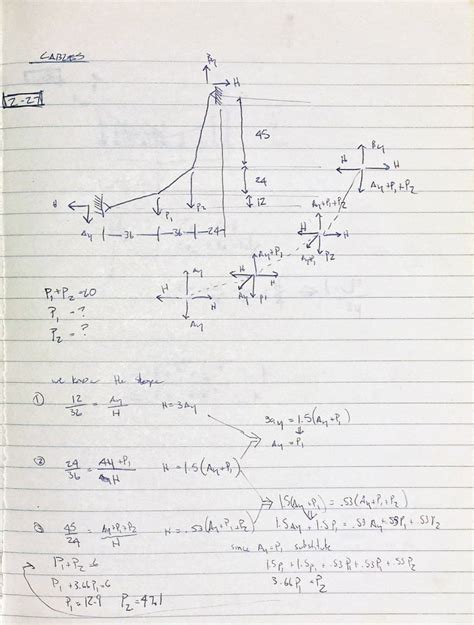 CABLES
2-27
By
H
45
24
12
H
Ay
P1
P2
36 36 24
By
H H
Ay+P1+P2
Ay+P1+P2
H H
Ay+P1 P2
Ay+P1
H H
Ay P1
Ay
H H
Ay
P1+P2=20
P1 = ?
P2 = ?
we know the shape
① 12/36 = Ay/H H = 3Ay
3Ay = 1.5(Ay+P1)
Ay = P1
② 24/36 = Ay+P1/H H = 1.5(Ay+P1)
1.5(Ay+P1) = .53(Ay+P1+P2)
③ 45/24 = Ay+P1+P2/H H = .53(Ay+P1+P2)
1.5Ay+1.5P1 = .53Ay+.53P1+.53P2
since Ay=P1 substitute
1.5P1+1.5P1 = .53P1+.53P1+.53P2
3.66P1=P2
P1+3.66P1=6
P1=12.9 P2=47.1